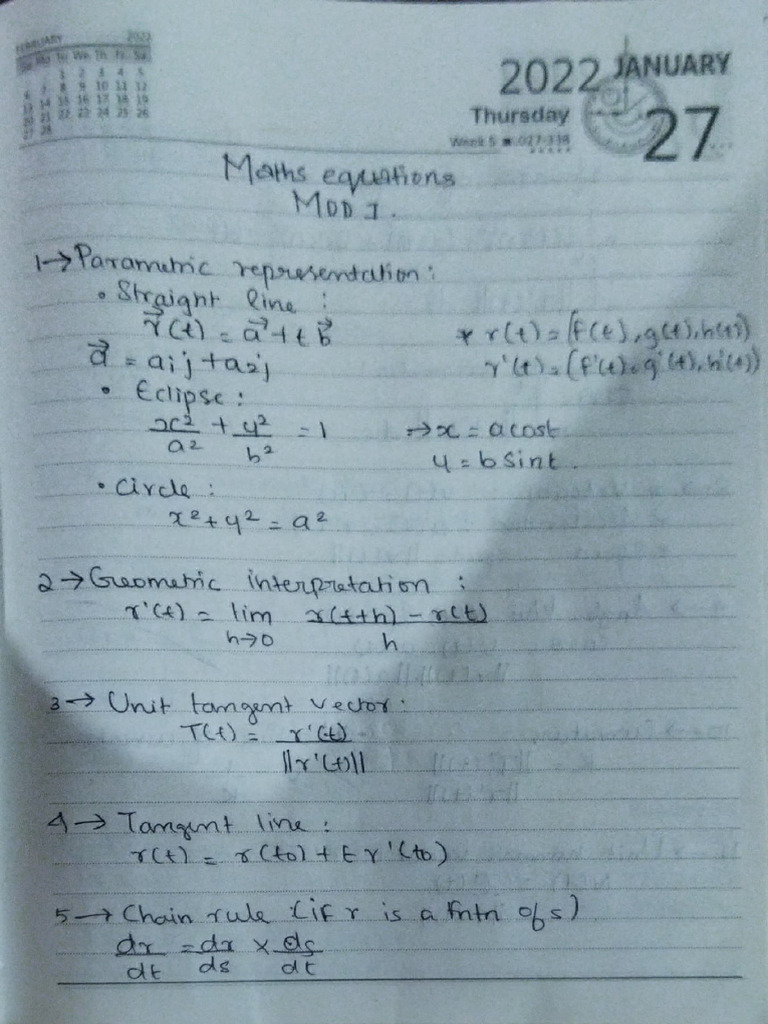 FEBRUARY 2022
Su Mo Tu We Th Fr Sa
1 2 3 4 5
6 7 8 9 10 11 12
13 14 15 16 17 18 19
20 21 22 23 24 25 26
27 28
2022 JANUARY
Thursday 27
Week 5 ■ 027-338
Maths equations
MOD 1.
1→ Parametric representation:
• Straight line :
r⃗(t) = a⃗ + t b⃗ * r(t) = (f(t), g(t), h(t))
a⃗ = a₁j + a₂j r'(t) = (f'(t), g'(t), h'(t))
• Eclipse :
x²/a² + y²/b² = 1 → x = a cost
y = b sint.
• Circle :
x² + y² = a²
2 → Geometric interpretation :
r'(t) = lim h→0 r(t+h) - r(t) / h
3 → Unit tangent vector:
T(t) = r'(t) / ||r'(t)||
4 → Tangent line :
r(t) = r(t₀) + t r'(t₀)
5 → Chain rule (if r is a fntn of s)
dr/dt = dr/ds × ds/dt